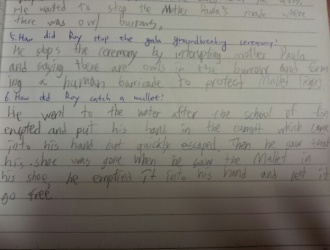 He wanted to stop the Mother Paula's made where
there was owl burrows.
5. How did Roy stop the gala groundbreaking ceremony?
He stops the ceremony by interrupting mother Paula
and saying there are owls in the burrows and form
ing a human barricade to protect Mullet Fingers
6. How did Roy catch a mullet?
He went to the water after the school of fish
erupted and put his hand in the which came
into his hand but quickly escaped. Then he saw that
his shoe was gone when he saw the Mullet in
his shoe he emptied it into his hand and let it
go free